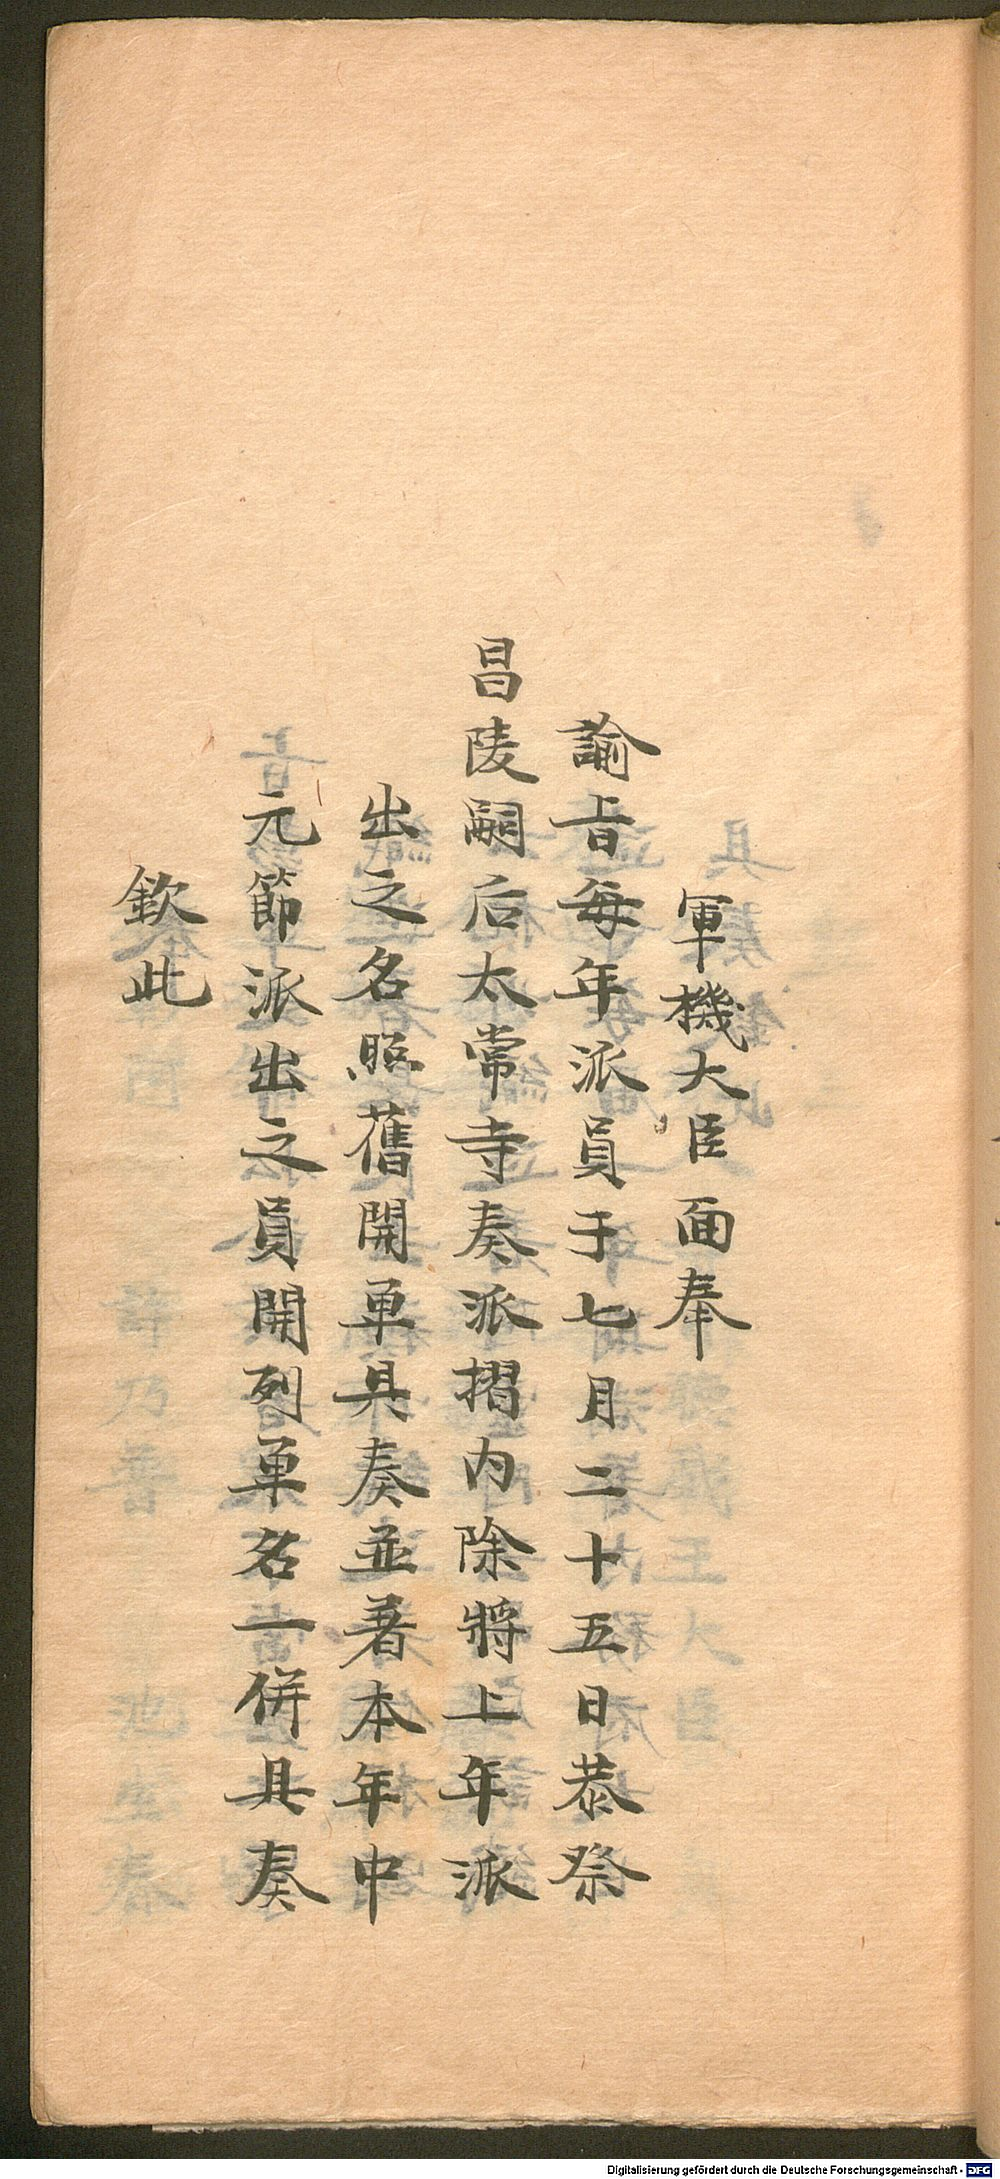 軍機大臣面奉
諭旨每年派員于七月二十五日恭祭
昌陵嗣后太常寺奏派摺內除將上年派
出之名照舊開单具奏並著本年中
元節派出之員開列单名一併具奏
欽此
Digitalisierung gefördert durch die Deutsche Forschungsgemeinschaft - DFG